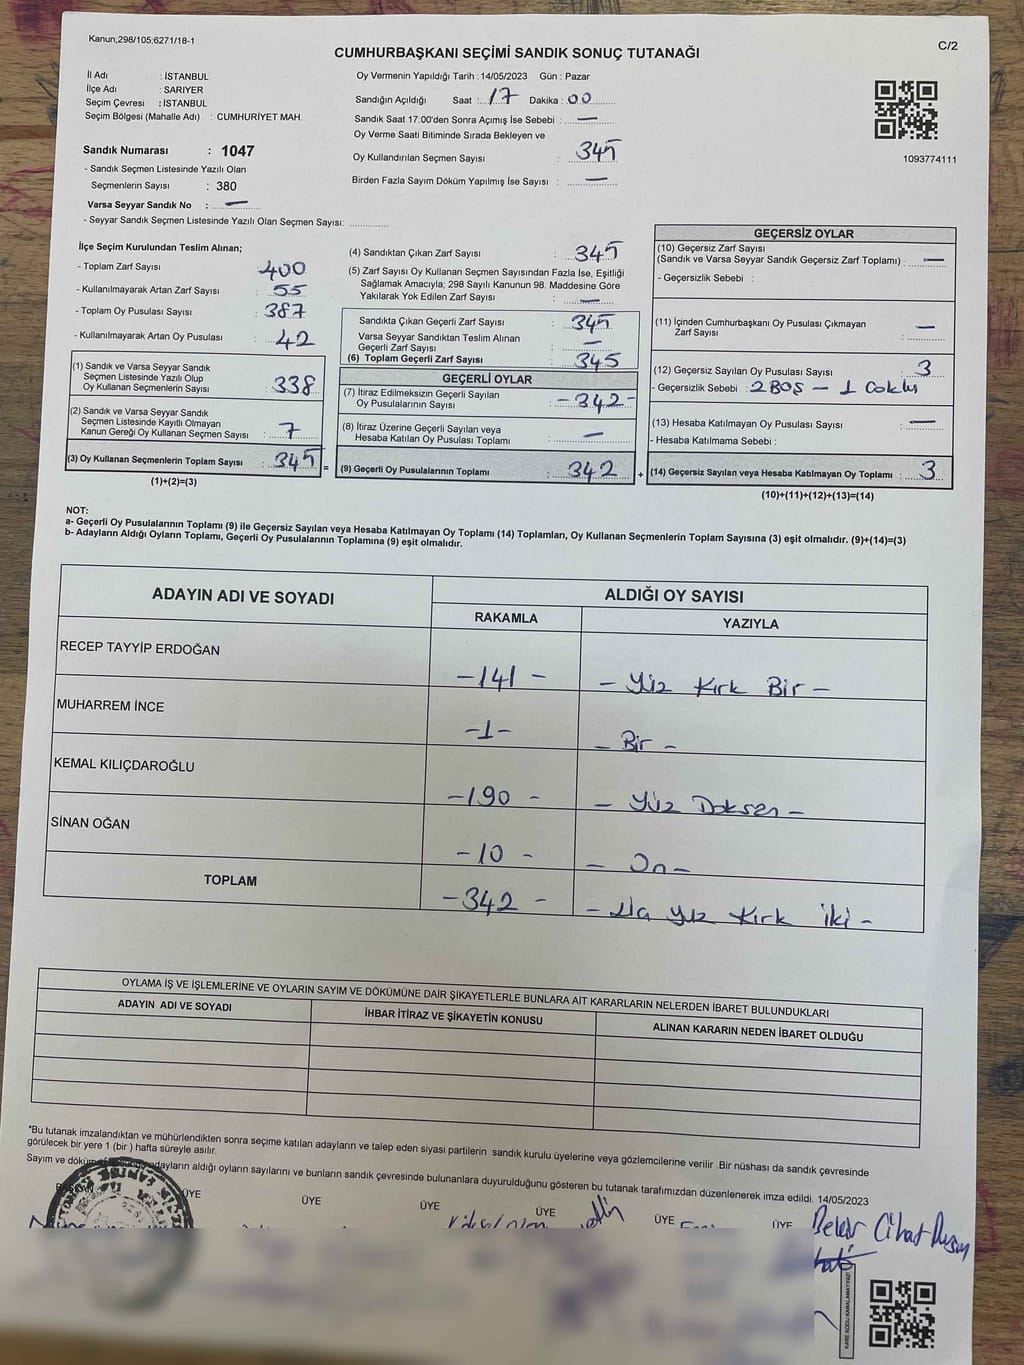 Kanun;298/105;6271/18-1
C/2
CUMHURBAŞKANI SEÇİMİ SANDIK SONUÇ TUTANAĞI
İl Adı : İSTANBUL
İlçe Adı : SARIYER
Seçim Çevresi : İSTANBUL
Seçim Bölgesi (Mahalle Adı) : CUMHURİYET MAH.
Sandık Numarası : 1047
- Sandık Seçmen Listesinde Yazılı Olan
Seçmenlerin Sayısı : 380
Varsa Seyyar Sandık No : —
- Seyyar Sandık Seçmen Listesinde Yazılı Olan Seçmen Sayısı:
Oy Vermenin Yapıldığı Tarih : 14/05/2023 Gün : Pazar
Sandığın Açıldığı Saat : 17 Dakika : 00
Sandık Saat 17:00'den Sonra Açımış İse Sebebi : —
Oy Verme Saati Bitiminde Sırada Bekleyen ve
Oy Kullandırılan Seçmen Sayısı : 345
Birden Fazla Sayım Döküm Yapılmış İse Sayısı : —
1093774111
İlçe Seçim Kurulundan Teslim Alınan;
- Toplam Zarf Sayısı : 400
- Kullanılmayarak Artan Zarf Sayısı : 55
- Toplam Oy Pusulası Sayısı : 387
- Kullanılmayarak Artan Oy Pusulası : 42
(1) Sandık ve Varsa Seyyar Sandık
Seçmen Listesinde Yazılı Olup
Oy Kullanan Seçmenlerin Sayısı : 338
(2) Sandık ve Varsa Seyyar Sandık
Seçmen Listesinde Kayıtlı Olmayan
Kanun Gereği Oy Kullanan Seçmen Sayısı : 7
(3) Oy Kullanan Seçmenlerin Toplam Sayısı : 345 =
(1)+(2)=(3)
(4) Sandıktan Çıkan Zarf Sayısı : 345
(5) Zarf Sayısı Oy Kullanan Seçmen Sayısından Fazla İse, Eşitliği
Sağlamak Amacıyla; 298 Sayılı Kanunun 98. Maddesine Göre
Yakılarak Yok Edilen Zarf Sayısı : —
Sandıkta Çıkan Geçerli Zarf Sayısı : 345
Varsa Seyyar Sandıktan Teslim Alınan
Geçerli Zarf Sayısı : —
(6) Toplam Geçerli Zarf Sayısı : 345
GEÇERLİ OYLAR
(7) İtiraz Edilmeksizin Geçerli Sayılan
Oy Pusulalarının Sayısı : -342-
(8) İtiraz Üzerine Geçerli Sayılan veya
Hesaba Katılan Oy Pusulası Toplamı : —
(9) Geçerli Oy Pusulalarının Toplamı : 342 +
GEÇERSİZ OYLAR
(10) Geçersiz Zarf Sayısı
(Sandık ve Varsa Seyyar Sandık Geçersiz Zarf Toplamı) : —
- Geçersizlik Sebebi :
(11) İçinden Cumhurbaşkanı Oy Pusulası Çıkmayan
Zarf Sayısı : —
(12) Geçersiz Sayılan Oy Pusulası Sayısı : 3
- Geçersizlik Sebebi : 2 BOŞ - 1
(13) Hesaba Katılmayan Oy Pusulası Sayısı : —
- Hesaba Katılmama Sebebi :
(14) Geçersiz Sayılan veya Hesaba Katılmayan Oy Toplamı : 3
(10)+(11)+(12)+(13)=(14)
NOT:
a- Geçerli Oy Pusulalarının Toplamı (9) ile Geçersiz Sayılan veya Hesaba Katılmayan Oy Toplamı (14) Toplamları, Oy Kullanan Seçmenlerin Toplam Sayısına (3) eşit olmalıdır. (9)+(14)=(3)
b- Adayların Aldığı Oyların Toplamı, Geçerli Oy Pusulalarının Toplamına (9) eşit olmalıdır.
ADAYIN ADI VE SOYADI
ALDIĞI OY SAYISI
RAKAMLA YAZIYLA
RECEP TAYYİP ERDOĞAN -141- - Yüz Kırk Bir -
MUHARREM İNCE -1- - Bir -
KEMAL KILIÇDAROĞLU -190- - Yüz Doksan -
SİNAN OĞAN -10- - On -
TOPLAM -342- - Üç Yüz Kırk İki -
OYLAMA İŞ VE İŞLEMLERİNE VE OYLARIN SAYIM VE DÖKÜMÜNE DAİR ŞİKAYETLERLE BUNLARA AİT KARARLARIN NELERDEN İBARET BULUNDUKLARI
ADAYIN ADI VE SOYADI İHBAR İTİRAZ VE ŞİKAYETİN KONUSU ALINAN KARARIN NEDEN İBARET OLDUĞU
*Bu tutanak imzalandıktan ve mühürlendikten sonra seçime katılan adayların ve talep eden siyasi partilerin sandık kurulu üyelerine veya gözlemcilerine verilir .Bir nüshası da sandık çevresinde
görülecek bir yere 1 (bir ) hafta süreyle asılır.
Sayım ve döküm adayların aldığı oyların sayılarını ve bunların sandık çevresinde bulunanlara duyurulduğunu gösteren bu tutanak tarafımızdan düzenlenerek imza edildi. 14/05/2023
BAŞKAN ÜYE ÜYE ÜYE ÜYE ÜYE ÜYE
Cihat
KARE KODU KARALAMAYINIZ!